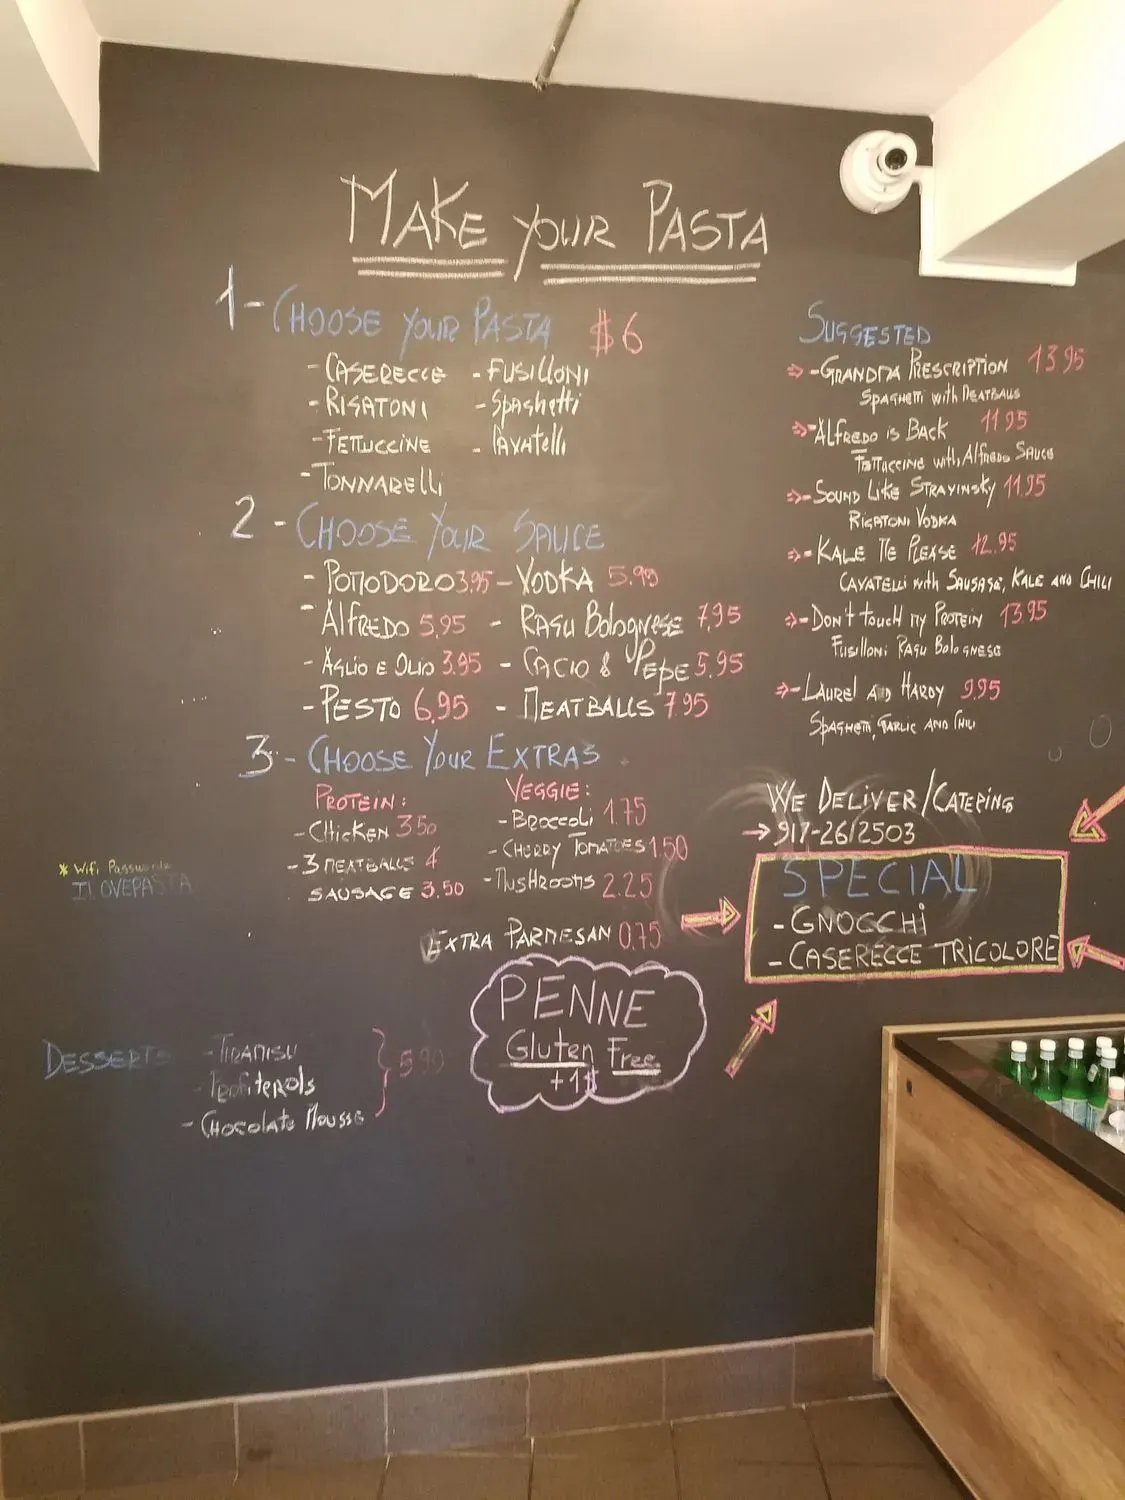 MAKE YOUR PASTA
1- CHOOSE YOUR PASTA $6
- CASERECCE - FUSILLONI
- RIGATONI - SPAGHETTI
- FETTUCCINE - CAVATELLI
- TONNARELLI
2 - CHOOSE YOUR SAUCE
- POMODORO 3.95 - VODKA 5.99
- ALFREDO 5.95 - RAGU BOLOGNESE 7.95
- AGLIO E OLIO 3.95 - CACIO & PEPE 5.95
- PESTO 6.95 - MEATBALLS 7.95
3 - CHOOSE YOUR EXTRAS
PROTEIN: VEGGIE:
- CHICKEN 3.50 - BROCCOLI 1.75
- 3 MEATBALLS 4 - CHERRY TOMATOES 1.50
SAUSAGE 3.50 - MUSHROOMS 2.25
EXTRA PARMESAN 0.75
* Wifi Password
ILOVEPASTA
PENNE
Gluten Free
+1$
DESSERTS - TIRAMISU
- Profiterols 5.90
- CHOCOLATE MOUSSE
SUGGESTED
- GRANDMA PRESCRIPTION 13.95
SPAGHETTI WITH MEATBALLS
- ALFREDO IS BACK 11.95
FETTUCCINE with ALFREDO SAUCE
- SOUND LIKE STRAVINSKY 11.95
RIGATONI VODKA
- KALE ME PLEASE 12.95
CAVATELLI with SAUSAGE, KALE AND CHILI
- DON'T TOUCH MY PROTEIN 13.95
FUSILLONI RAGU BOLOGNESE
- LAUREL AND HARDY 9.95
SPAGHETTI, GARLIC AND CHILI
WE DELIVER/CATERING
917-26/2503
SPECIAL
- GNOCCHI
- CASERECCE TRICOLORE